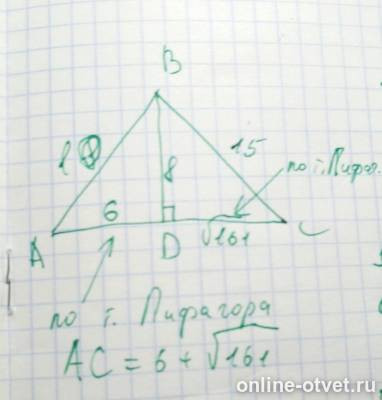 B
1
8
15
по т. Пифаг.
6
A
D
√161
C
по т. Пифагора
AC = 6 + √161
online-otvet.ru